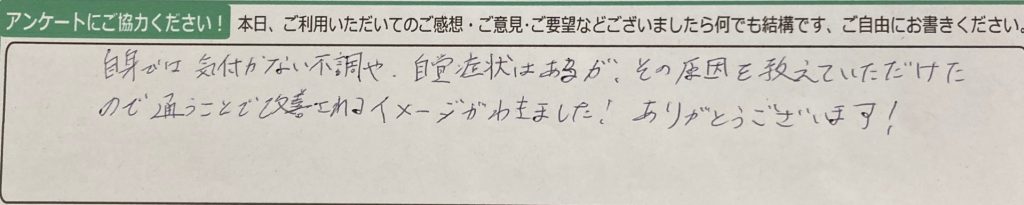 アンケートにご協力ください！ 本日、ご利用いただいてのご感想・ご意見・ご要望などございましたら何でも結構です、ご自由にお書きください。
自身では気付かない不調や、自覚症状はあるが、その原因を教えていただけた
ので通うことで改善されるイメージがわきました！ ありがとうございます！